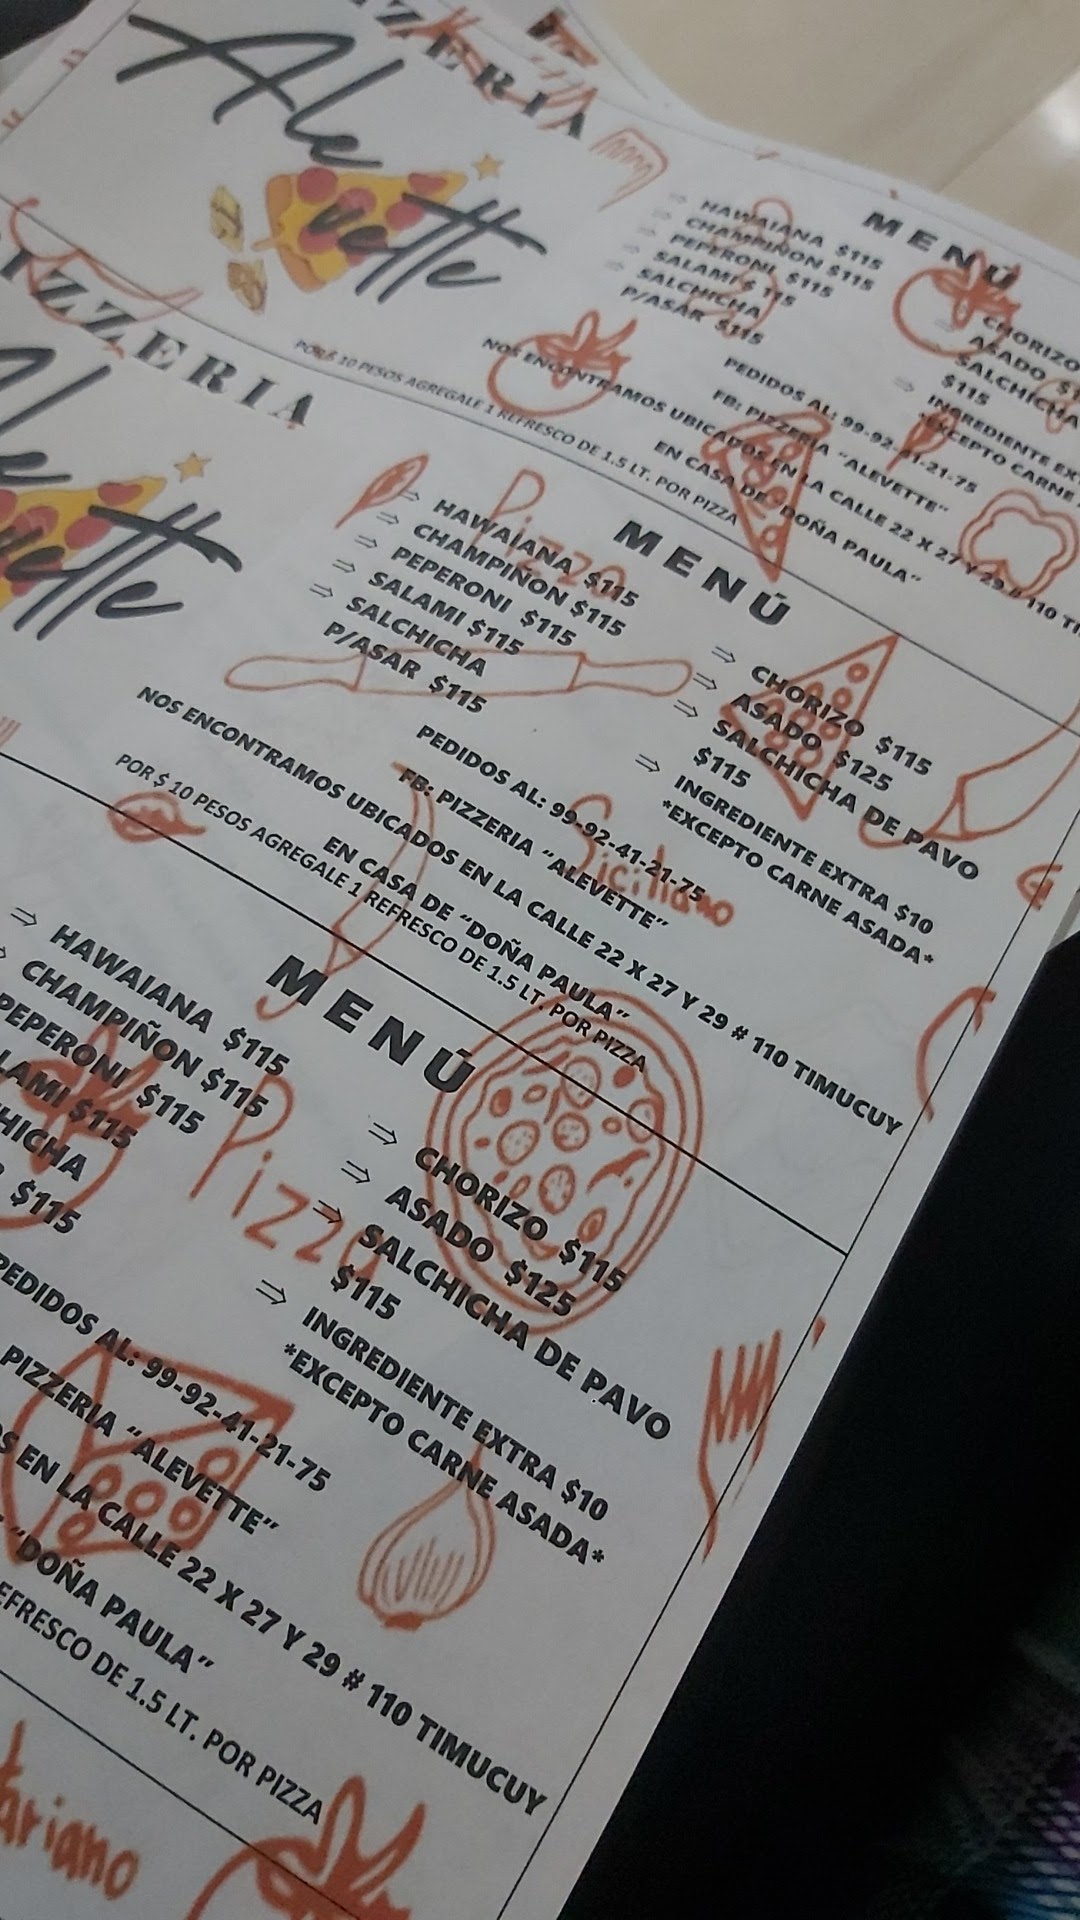 PIZZERIA
Ale
vette
MENÚ
⇨ HAWAIANA $115
⇨ CHAMPIÑON $115
⇨ PEPERONI $115
⇨ SALAMI $115
⇨ SALCHICHA
P/ASAR $115
CHORIZO
ASADO $1
SALCHICHA
$115
⇨ INGREDIENTE EX
*EXCEPTO CARNE
PEDIDOS AL: 99-92-41-21-75
FB: PIZZERIA "ALEVETTE"
NOS ENCONTRAMOS UBICADOS EN LA CALLE 22 X 27 Y 29 # 110 TI
EN CASA DE "DOÑA PAULA"
POR $ 10 PESOS AGREGALE 1 REFRESCO DE 1.5 LT. POR PIZZA
IZZERIA
le
vette
Pizza
MENÚ
⇨ HAWAIANA $115
⇨ CHAMPIÑON $115
⇨ PEPERONI $115
⇨ SALAMI $115
⇨ SALCHICHA
P/ASAR $115
⇨ CHORIZO $115
⇨ ASADO $125
⇨ SALCHICHA DE PAVO
$115
⇨ INGREDIENTE EXTRA $10
*EXCEPTO CARNE ASADA*
PEDIDOS AL: 99-92-41-21-75
FB: PIZZERIA "ALEVETTE"
Siciliano
NOS ENCONTRAMOS UBICADOS EN LA CALLE 22 X 27 Y 29 # 110 TIMUCUY
EN CASA DE "DOÑA PAULA"
POR $ 10 PESOS AGREGALE 1 REFRESCO DE 1.5 LT. POR PIZZA
MENÚ
⇨ HAWAIANA $115
CHAMPIÑON $115
PEPERONI $115
LAMI $115
HICHA
$115
Pizza
⇨ CHORIZO $115
⇨ ASADO $125
⇨ SALCHICHA DE PAVO
$115
⇨ INGREDIENTE EXTRA $10
*EXCEPTO CARNE ASADA*
PEDIDOS AL: 99-92-41-21-75
PIZZERIA "ALEVETTE"
OS EN LA CALLE 22 X 27 Y 29 # 110 TIMUCUY
"DOÑA PAULA"
EFRESCO DE 1.5 LT. POR PIZZA
tariano